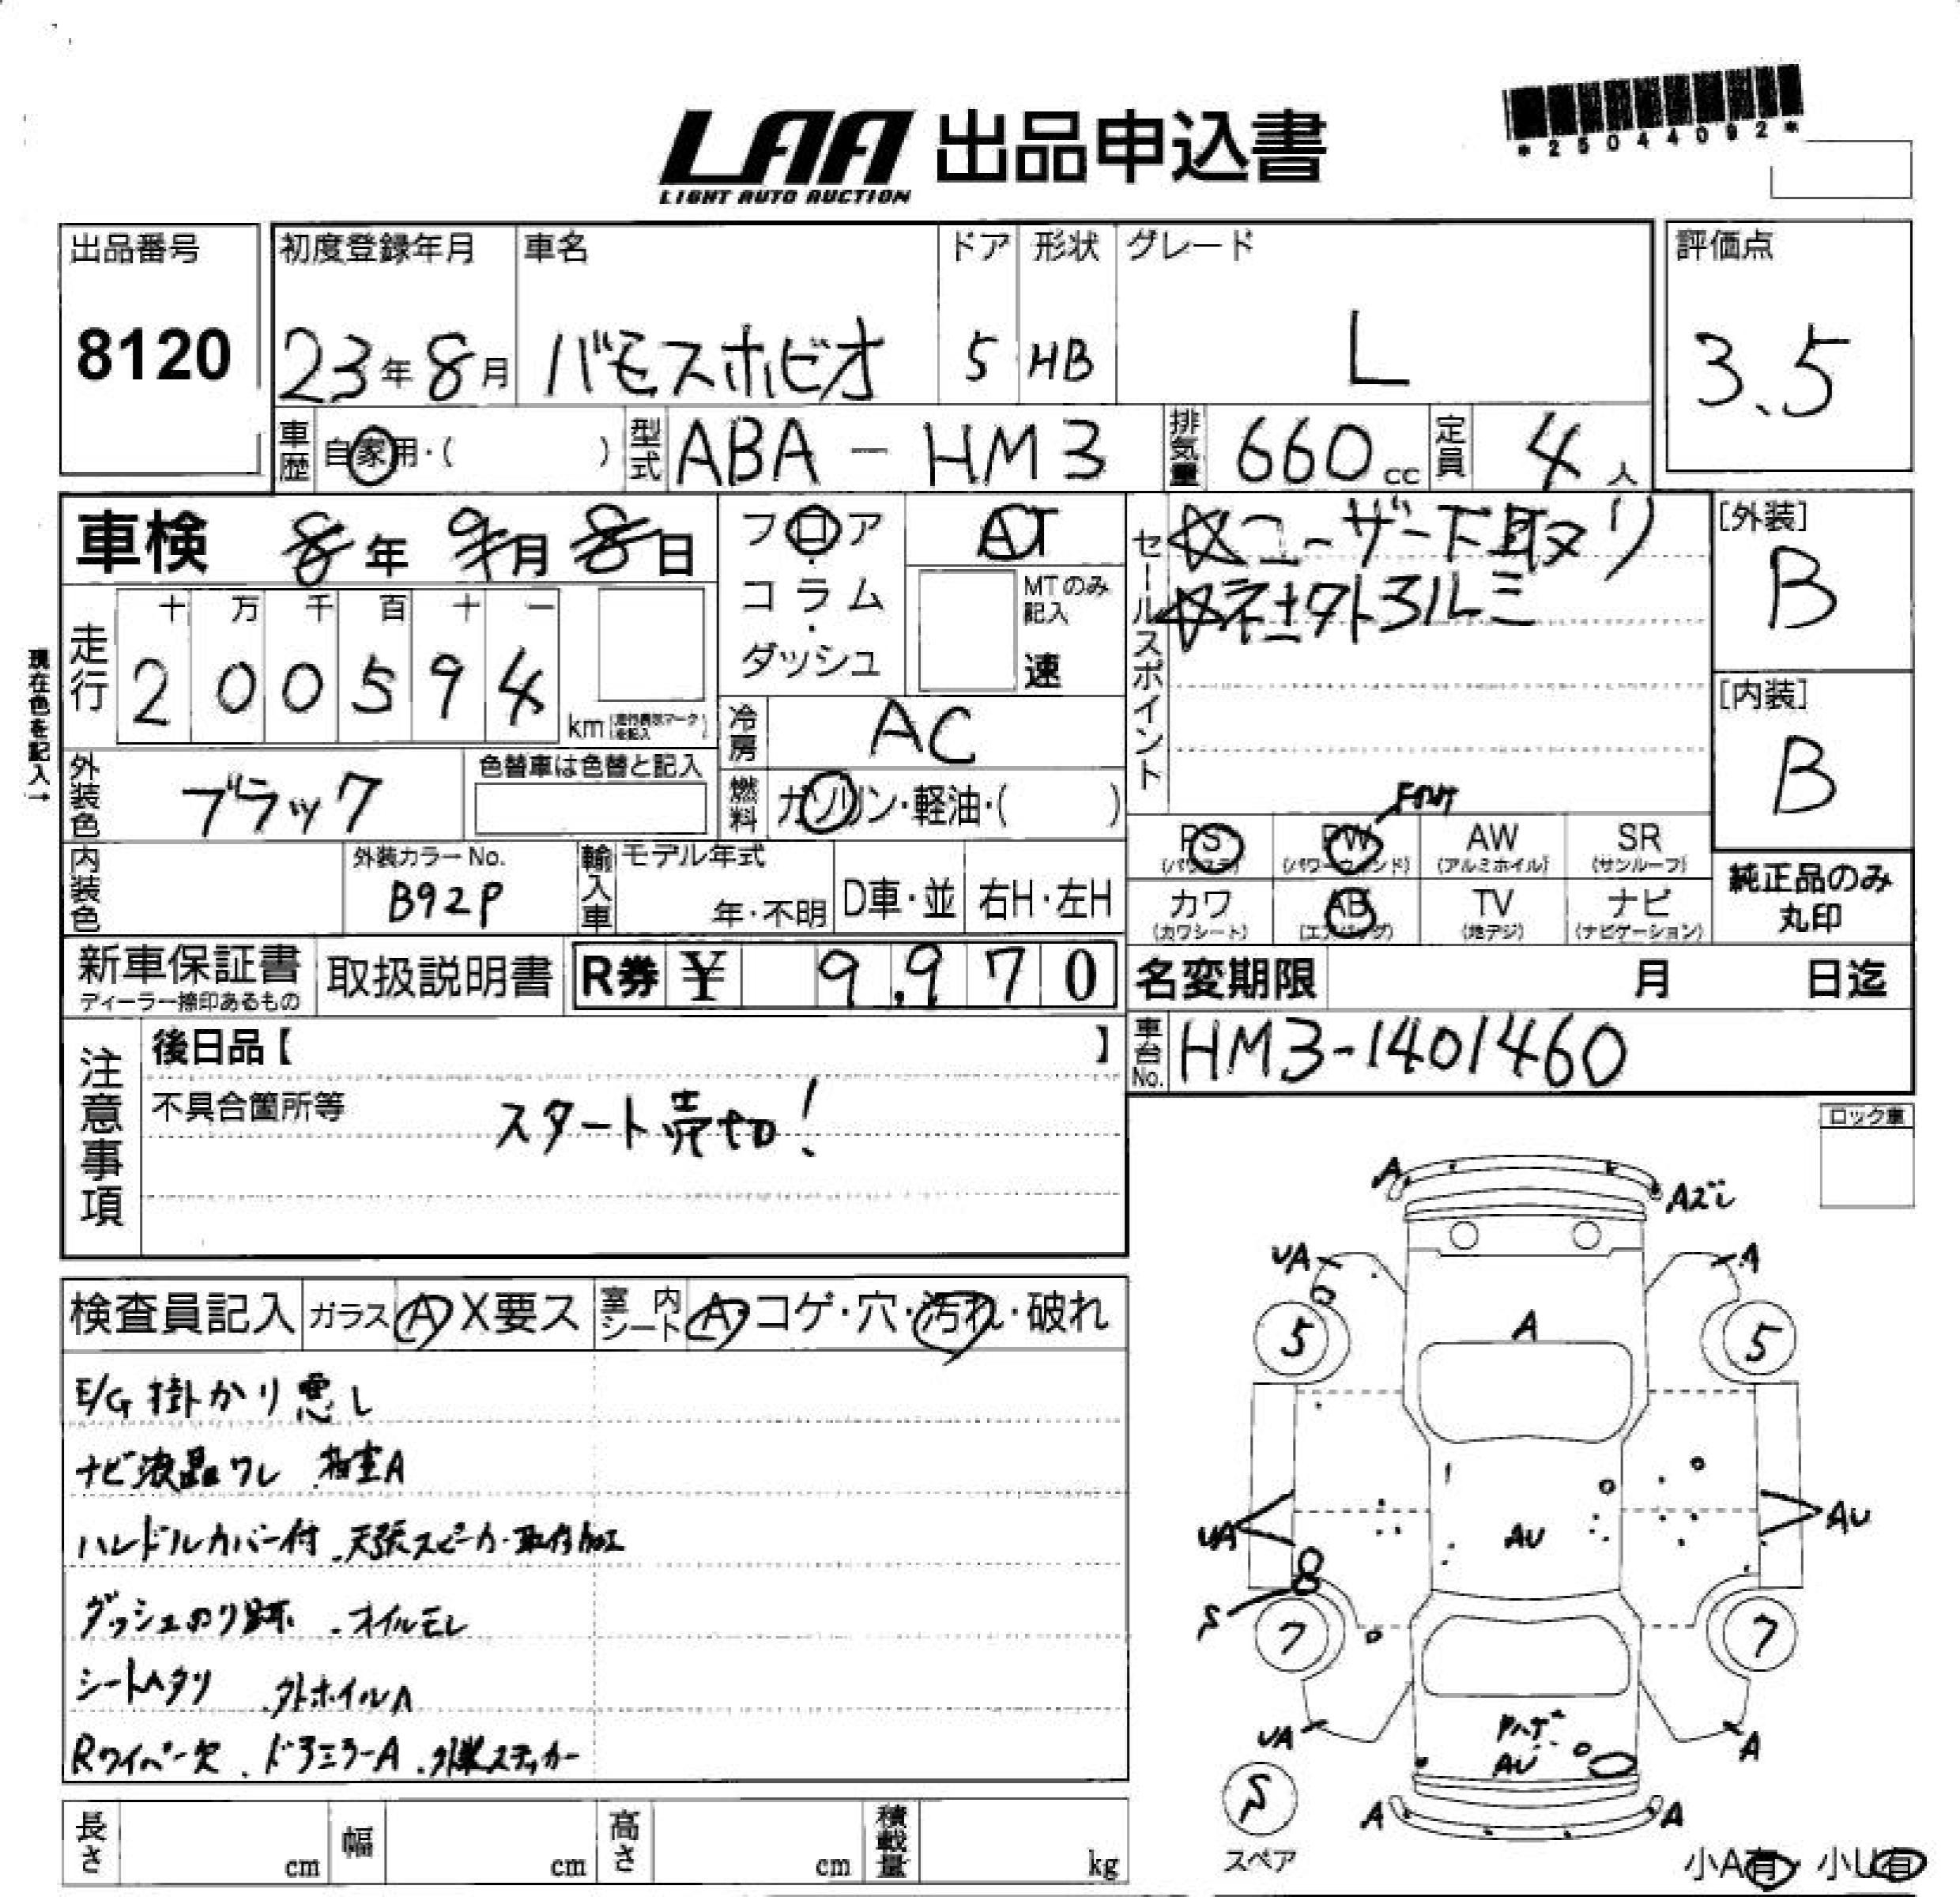 *25044092*
LAA 出品申込書
LIGHT AUTO AUCTION
出品番号 初度登録年月 車名 ドア 形状 グレード 評価点
8120 23年8月 バモスホビオ 5 HB L 3.5
車歴 自家用・( ) 型式 ABA-HM3 排気量 660cc 定員 4人
車検 8年9月8日 フロア AT
セールスポイント ☆ユーザー下取り
[外装] B
コラム・ MTのみ記入 速
ダッシュ
十 万 千 百 十 一
走行 2 0 0 5 9 4 km
[内装] B
冷房 AC
現在色を記入→
外装色 ブラック 色替車は色替と記入 燃料 ガソリン・軽油・( )
PS (パワステ) PW (パワーウィンド) AW (アルミホイル) SR (サンルーフ)
内装色 外装カラーNo. B92P 輸入車 モデル年式 年・不明 D車・並 右H・左H
カワ (カワシート) AB (エアバッグ) TV (地デジ) ナビ (ナビゲーション)
純正品のみ丸印
新車保証書 取扱説明書 R券 ¥ 9,970
名変期限 月 日迄
車台No. HM3-1401460
注意事項 後日品【 】
不具合箇所等 スタート売切!
ロック車
検査員記入 ガラス A X要ス 室内シート A・コゲ・穴・汚れ・破れ
E/G 掛かり悪し
ナビ液晶ワレ
ハンドルカバー付 .天張スピーカー取付加工
ダッシュのり跡 .オイルモレ
シートヘタリ .外ホイルA
Rワイパー欠 .ドアミラーA .外装ステッカー
A Aズレ
UA A
5 A 5
UA AU AU
S 7 7
UA AU A
A A
スペア
小A有・小U有
長さ cm 幅 cm 高さ cm 積載量 kg